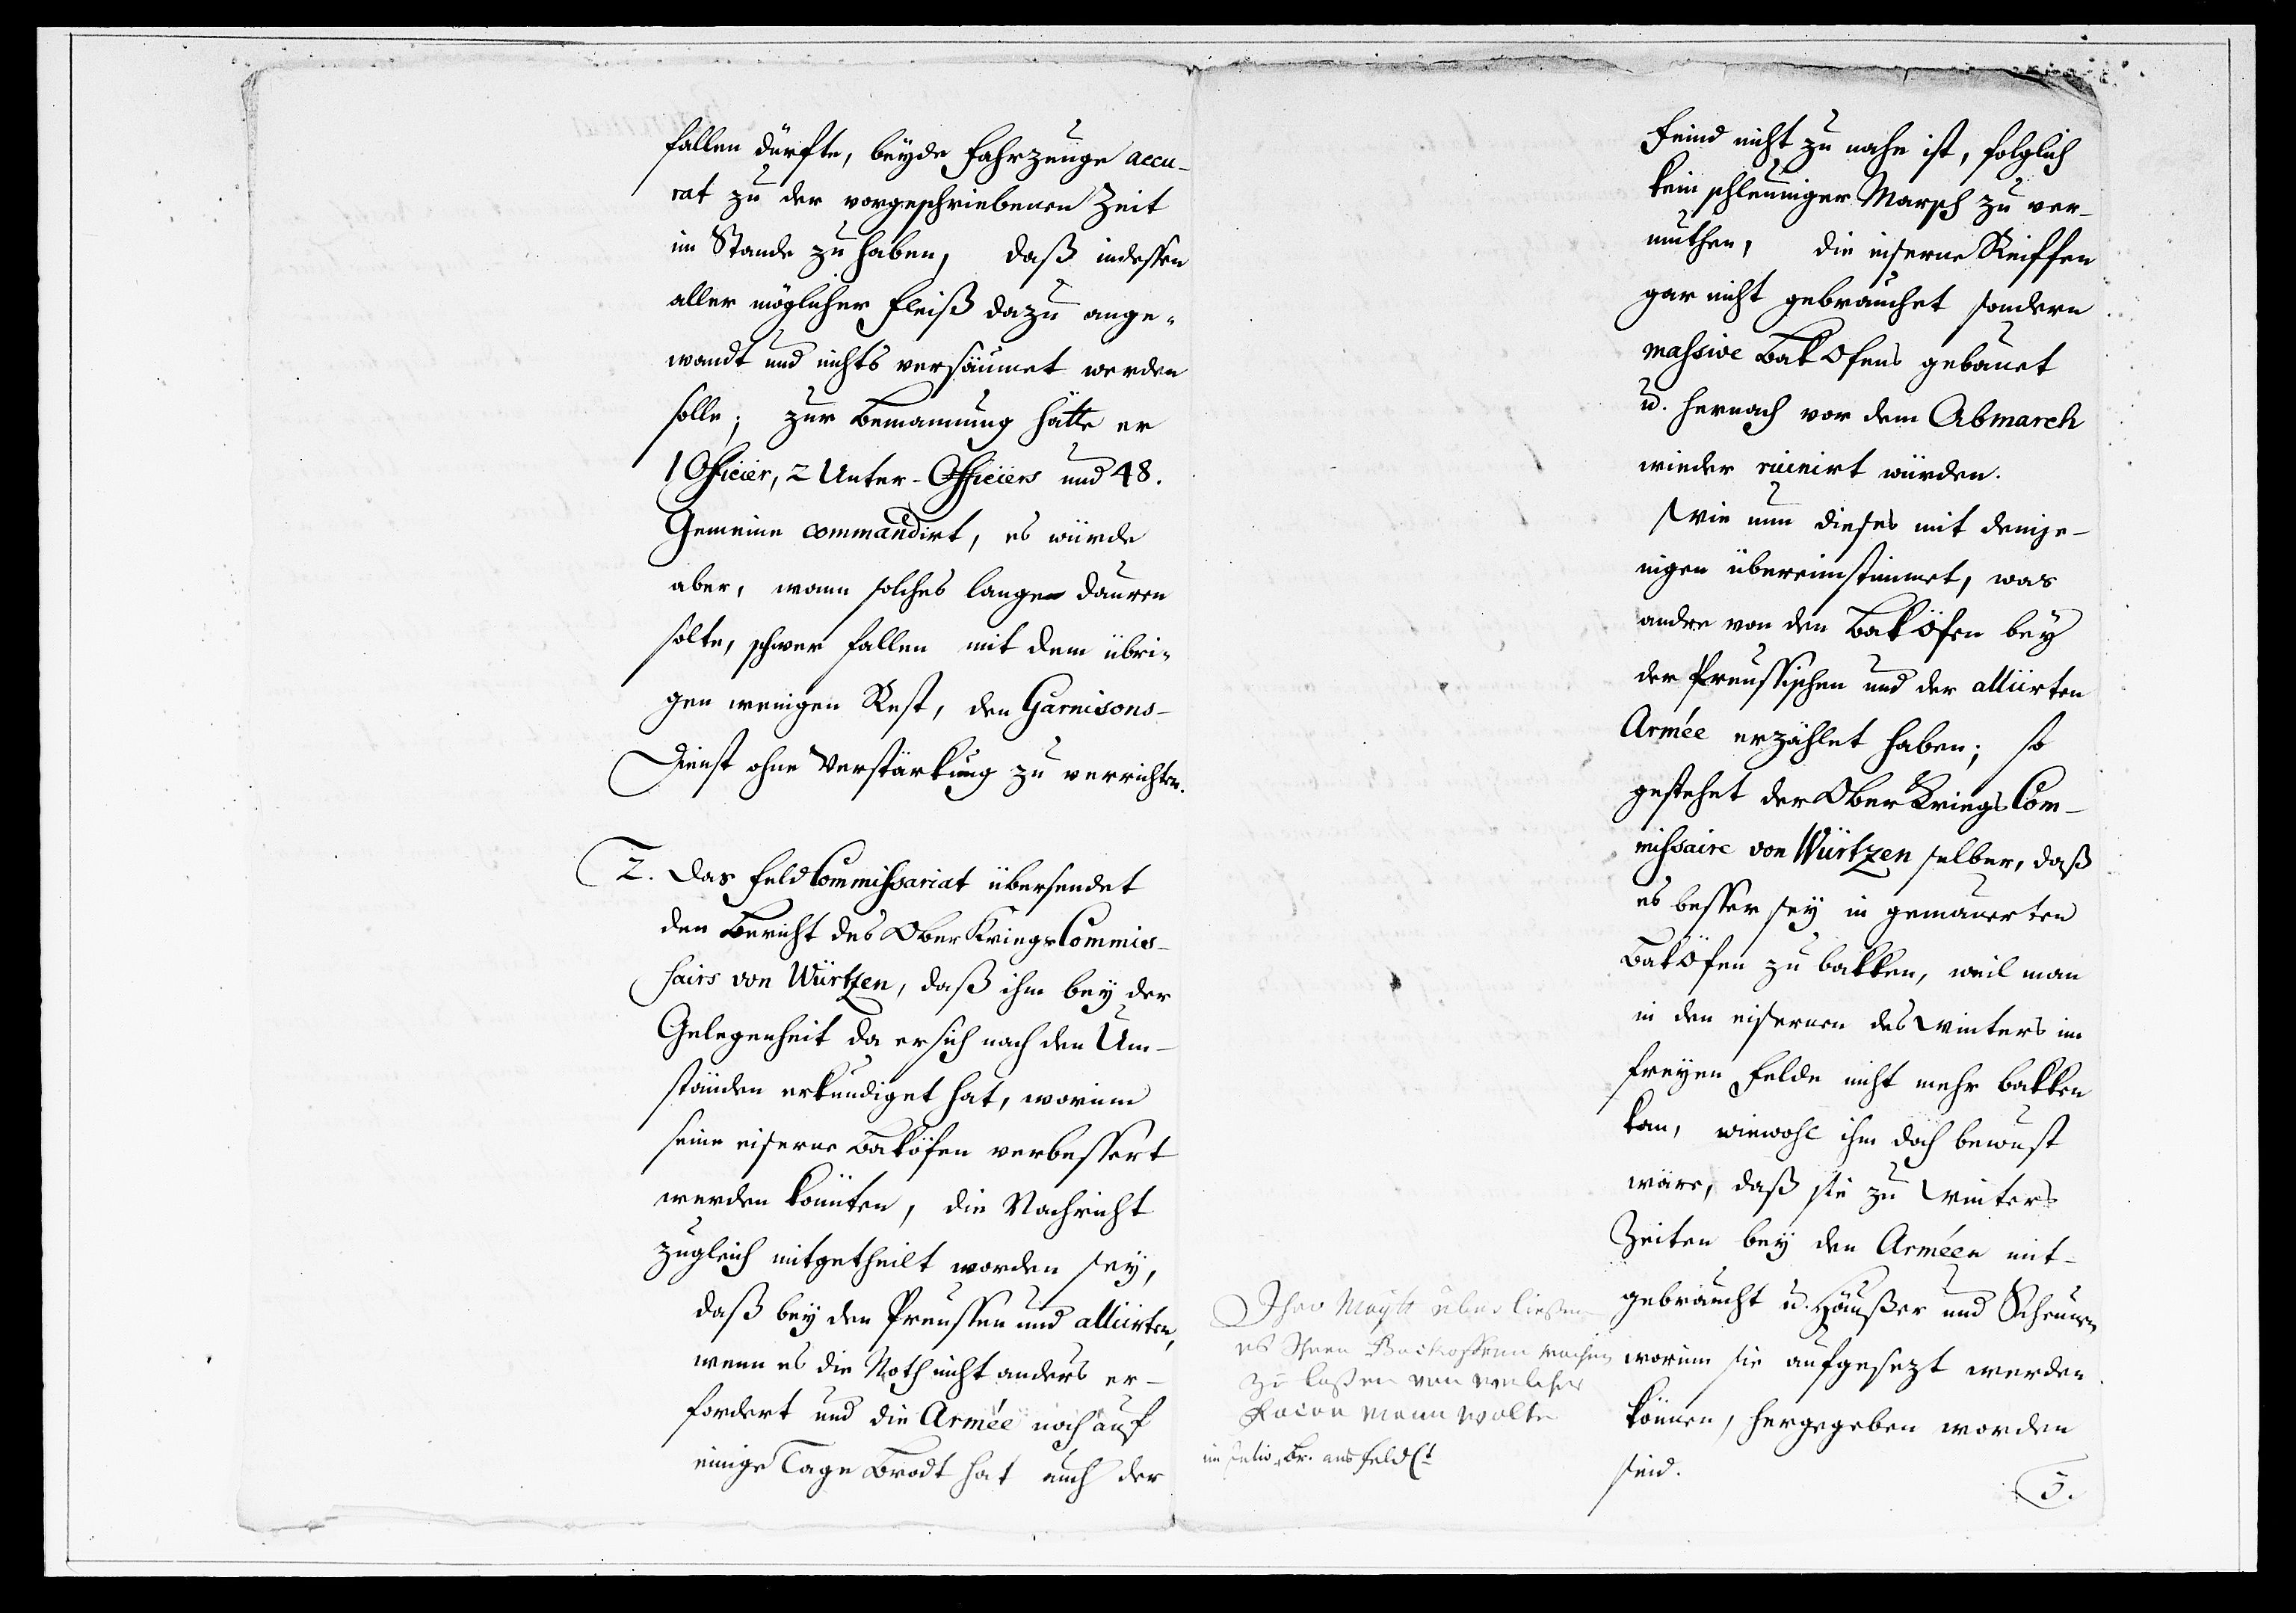 fallen dürfte, beyde Fahrzeuge accu-
rat zu der vorgeschriebenen Zeit
im Stande zu haben, daß indessen
aller möglicher Fleiß dazu ange-
wandt und nichts versäumet werden
solle; zur Bemannung hätte er
1 Officier, 2 Unter-Officiers und 48.
Gemeine commandirt, es würde
aber, wann solches lange dauren
solte, schwer fallen mit dem übri-
gen wenigen Rest, den Garnisons-
Dienst ohne Verstärkung zu verrichten.
2. Das FeldCommissariat übersendet
den Bericht des OberKriegsCommis-
sairs von Würtzen, daß ihm bey der
Gelegenheit da er sich nach den Um-
ständen erkundiget hat, worinn
seine eiserne Baköfen verbessert
werden könnten, die Nachricht
zugleich mitgetheilt worden sey,
daß bey den Preussen und alliirten,
wenn es die Noth nicht anders er-
fordert und die Armée noch auf
einige Tage Brodt hat auch der
Feind nicht zu nahe ist, folglich
kein schleuniger Marsch zu ver-
muthen, die eiserne Reiffen
gar nicht gebrauchet sondern
massive BakOfens gebauet
u. hernach vor dem Abmarch
wieder ruinirt würden.
Wie nun dieses mit demje-
nigen übereinstimmet, was
andre von den BakÖfen bey
der Preussischen und der alliirten
Armée erzählet haben; so
gestehet der OberKriegsCom-
missaire von Würtzen selber, daß
es besser sey in gemauerten
BakÖfen zu bakken, weil man
in den eisernen des Winters im
freyen Felde nicht mehr bakken
kan, wiewohl ihm doch bewust
wäre, daß sie zu Winters
Zeiten bey den Arméen mit-
gebraucht u. Häußer und Scheunen
worinn sie aufgesezt werden
können, hergegeben worden
sind.
3.
Ihro Maytt überließen
es Ihnen Backoffenn machen
zu laßen von welcher
Facon mann wolte
Br. ans FeldCt